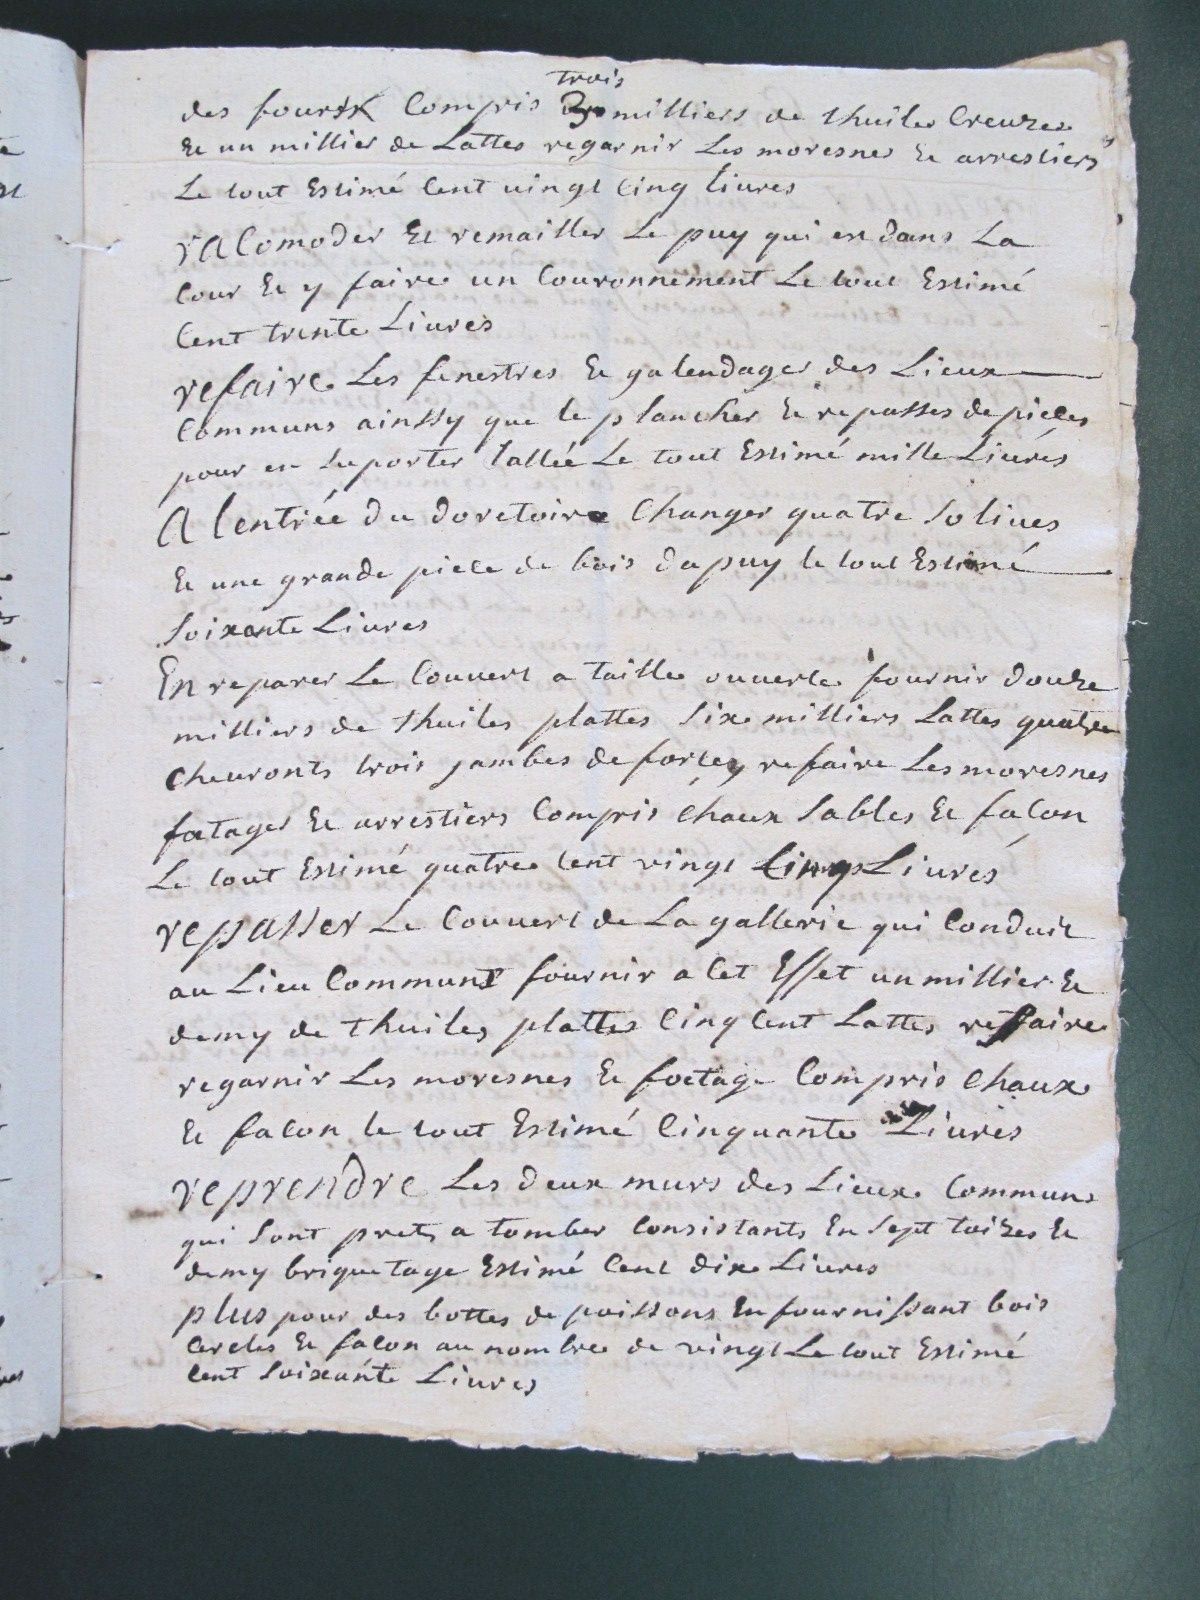 trois
des fours Compris 3 milliers de thuiles Creuzes
Et un millier de Lattes regarnir Les moresnes Et arrestiers
Le tout Estimé Cent vingt Cinq Livres
raComoder Et remailler Le puy qui est dans La
Cour Et y faire un Couronnement Le tout Estimé
Cent trente Livres
refaire Les fenestres Et galendages des Lieux
Communs ainssy que le plancher Et repasses de pieces
pour en suporter lallée Le tout Estimé mille Livres
A lentrée du doretoire Changer quatre Solives
Et une grande piece de bois dapuy le tout Estimé
Soixante Livres
En reparer Le Couvert a taille ouverte fournir douze
milliers de thuiles plattes Six milliers Lattes quatre
Chevronts trois jambes de forces refaire Les moresnes
fatages Et arrestiers Compris Chaux Sables Et facon
Le tout Estimé quatre Cent vingt Cinq Livres
repasser Le Couvert de La gallerie qui Conduit
au Lieu Commun fournir a Cet Effet un millier Et
demy de thuiles plattes Cinq Cent Lattes reffaire
regarnir Les moresnes Et foetage Compris Chaux
Et facon le tout Estimé Cinquante Livres
reprendre Les deux murs des Lieux Communs
qui Sont prets a tomber Consistants En Sept toizes Et
demy briquetage Estimé Cent dix Livres
plus pour des bottes de poissons En fournissant bois
Cercles Et facon au nombre de vingt Le tout Estimé
Cent Soixante Livres